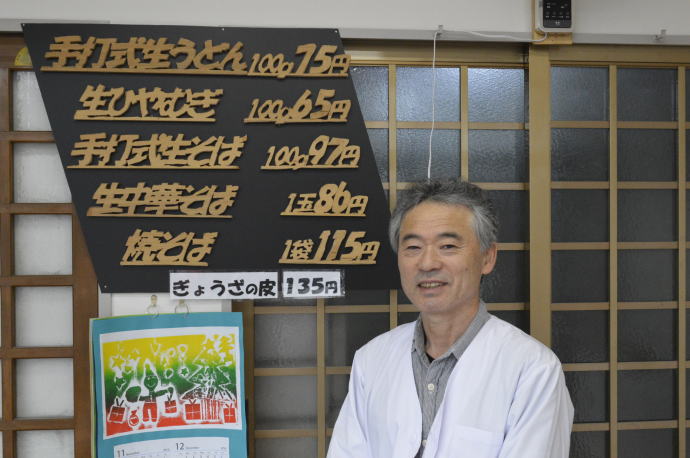 手打式生うどん 100g 75円
生ひやむぎ 100g 65円
手打式生そば 100g 97円
生中華そば 1玉 86円
焼そば 1袋 115円
ぎょうざの皮 135円
11
12